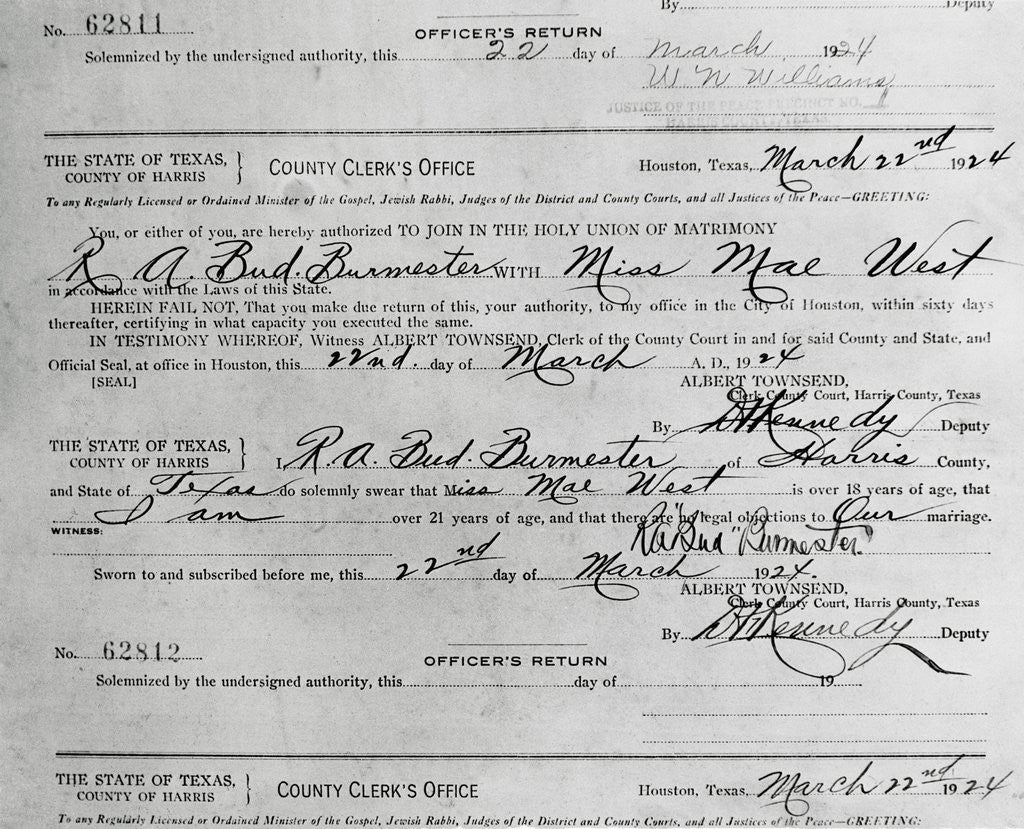 By.......... Deputy
No. 62811
OFFICER'S RETURN
Solemnized by the undersigned authority, this 22 day of March 1924
W N Williams
JUSTICE OF THE PEACE PRECINCT NO. 1
HARRIS COUNTY, TEXAS
THE STATE OF TEXAS, } COUNTY CLERK'S OFFICE Houston, Texas, March 22nd 1924
COUNTY OF HARRIS
To any Regularly Licensed or Ordained Minister of the Gospel, Jewish Rabbi, Judges of the District and County Courts, and all Justices of the Peace—GREETING:
You, or either of you, are hereby authorized TO JOIN IN THE HOLY UNION OF MATRIMONY
R A. Bud. Burmester WITH Miss Mae West
in accordance with the Laws of this State.
HEREIN FAIL NOT, That you make due return of this, your authority, to my office in the City of Houston, within sixty days
thereafter, certifying in what capacity you executed the same.
IN TESTIMONY WHEREOF, Witness ALBERT TOWNSEND, Clerk of the County Court in and for said County and State, and
Official Seal, at office in Houston, this 22nd. day of March A. D., 1924
[SEAL] ALBERT TOWNSEND,
Clerk County Court, Harris County, Texas
By Kennedy Deputy
THE STATE OF TEXAS, } I, R. A. Bud. Burmester of Harris County,
COUNTY OF HARRIS
and State of Texas do solemnly swear that Miss Mae West is over 18 years of age, that
I am over 21 years of age, and that there are no legal objections to Our marriage.
WITNESS:
RA "Bud" Burmester.
Sworn to and subscribed before me, this 22nd day of March 1924.
ALBERT TOWNSEND,
Clerk County Court, Harris County, Texas
By Kennedy Deputy
No. 62812
OFFICER'S RETURN
Solemnized by the undersigned authority, this.......... day of.......... 19......
THE STATE OF TEXAS, } COUNTY CLERK'S OFFICE Houston, Texas, March 22nd 1924
COUNTY OF HARRIS
To any Regularly Licensed or Ordained Minister of the Gospel, Jewish Rabbi, Judges of the District and County Courts, and all Justices of the Peace—GREETING: